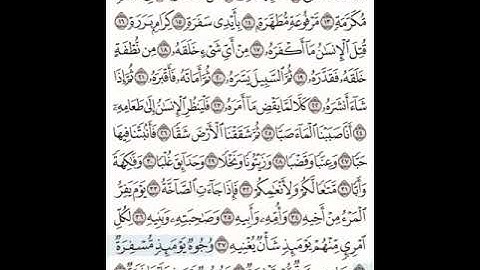 مُّكَرَّمَةٍ ١٣ مَّرْفُوعَةٍ مُّطَهَّرَةٍ ١٤ بِأَيْدِى سَفَرَةٍ ١٥ كِرَامٍ بَرَرَةٍ ١٦
قُتِلَ ٱلْإِنسَٰنُ مَآ أَكْفَرَهُۥ ١٧ مِنْ أَىِّ شَىْءٍ خَلَقَهُۥ ١٨ مِن نُّطْفَةٍ
خَلَقَهُۥ فَقَدَّرَهُۥ ١٩ ثُمَّ ٱلسَّبِيلَ يَسَّرَهُۥ ٢٠ ثُمَّ أَمَاتَهُۥ فَأَقْبَرَهُۥ ٢١ ثُمَّ إِذَا
شَآءَ أَنشَرَهُۥ ٢٢ كَلَّا لَمَّا يَقْضِ مَآ أَمَرَهُۥ ٢٣ فَلْيَنظُرِ ٱلْإِنسَٰنُ إِلَىٰ طَعَامِهِۦٓ
٢٤ أَنَّا صَبَبْنَا ٱلْمَآءَ صَبًّا ٢٥ ثُمَّ شَقَقْنَا ٱلْأَرْضَ شَقًّا ٢٦ فَأَنۢبَتْنَا فِيهَا
حَبًّا ٢٧ وَعِنَبًا وَقَضْبًا ٢٨ وَزَيْتُونًا وَنَخْلًا ٢٩ وَحَدَآئِقَ غُلْبًا ٣٠ وَفَٰكِهَةً
وَأَبًّا ٣١ مَّتَٰعًا لَّكُمْ وَلِأَنْعَٰمِكُمْ ٣٢ فَإِذَا جَآءَتِ ٱلصَّآخَّةُ ٣٣ يَوْمَ يَفِرُّ
ٱلْمَرْءُ مِنْ أَخِيهِ ٣٤ وَأُمِّهِۦ وَأَبِيهِ ٣٥ وَصَٰحِبَتِهِۦ وَبَنِيهِ ٣٦ لِكُلِّ
ٱمْرِئٍ مِّنْهُمْ يَوْمَئِذٍ شَأْنٌ يُغْنِيهِ ٣٧ وُجُوهٌ يَوْمَئِذٍ مُّسْفِرَةٌ